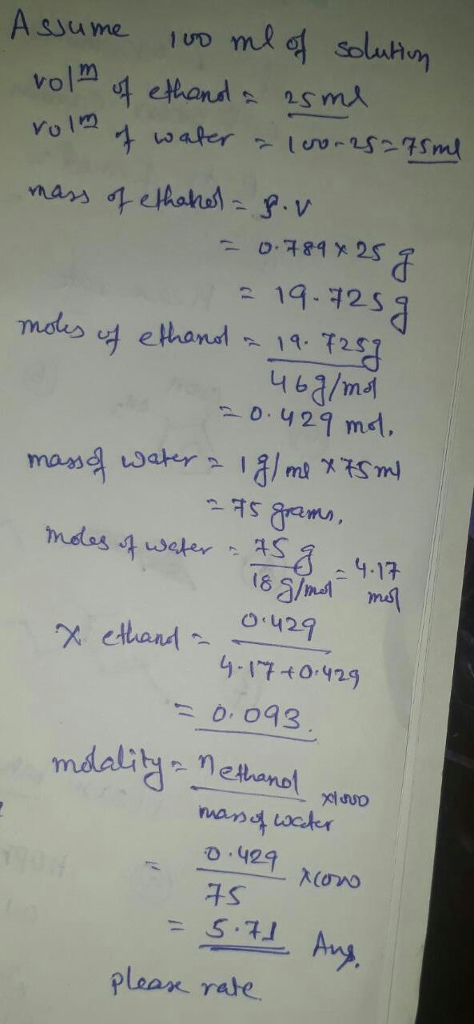 Assume 100 ml of solution
volm of ethanol = 25ml
volm of water = 100-25=75ml
mass of ethanol = ρ.v
= 0.789 x 25 g
= 19.725g
moles of ethanol = 19.725g
46g/mol
= 0.429 mol.
mass of water = 1g/ml x 75ml
= 75 grams.
moles of water = 75 g
18 g/mol = 4.17 mol
x ethanol = 0.429
4.17+0.429
= 0.093.
molality = n ethanol x1000
mass of water
= 0.429 x1000
75
= 5.71 Ans.
please rate